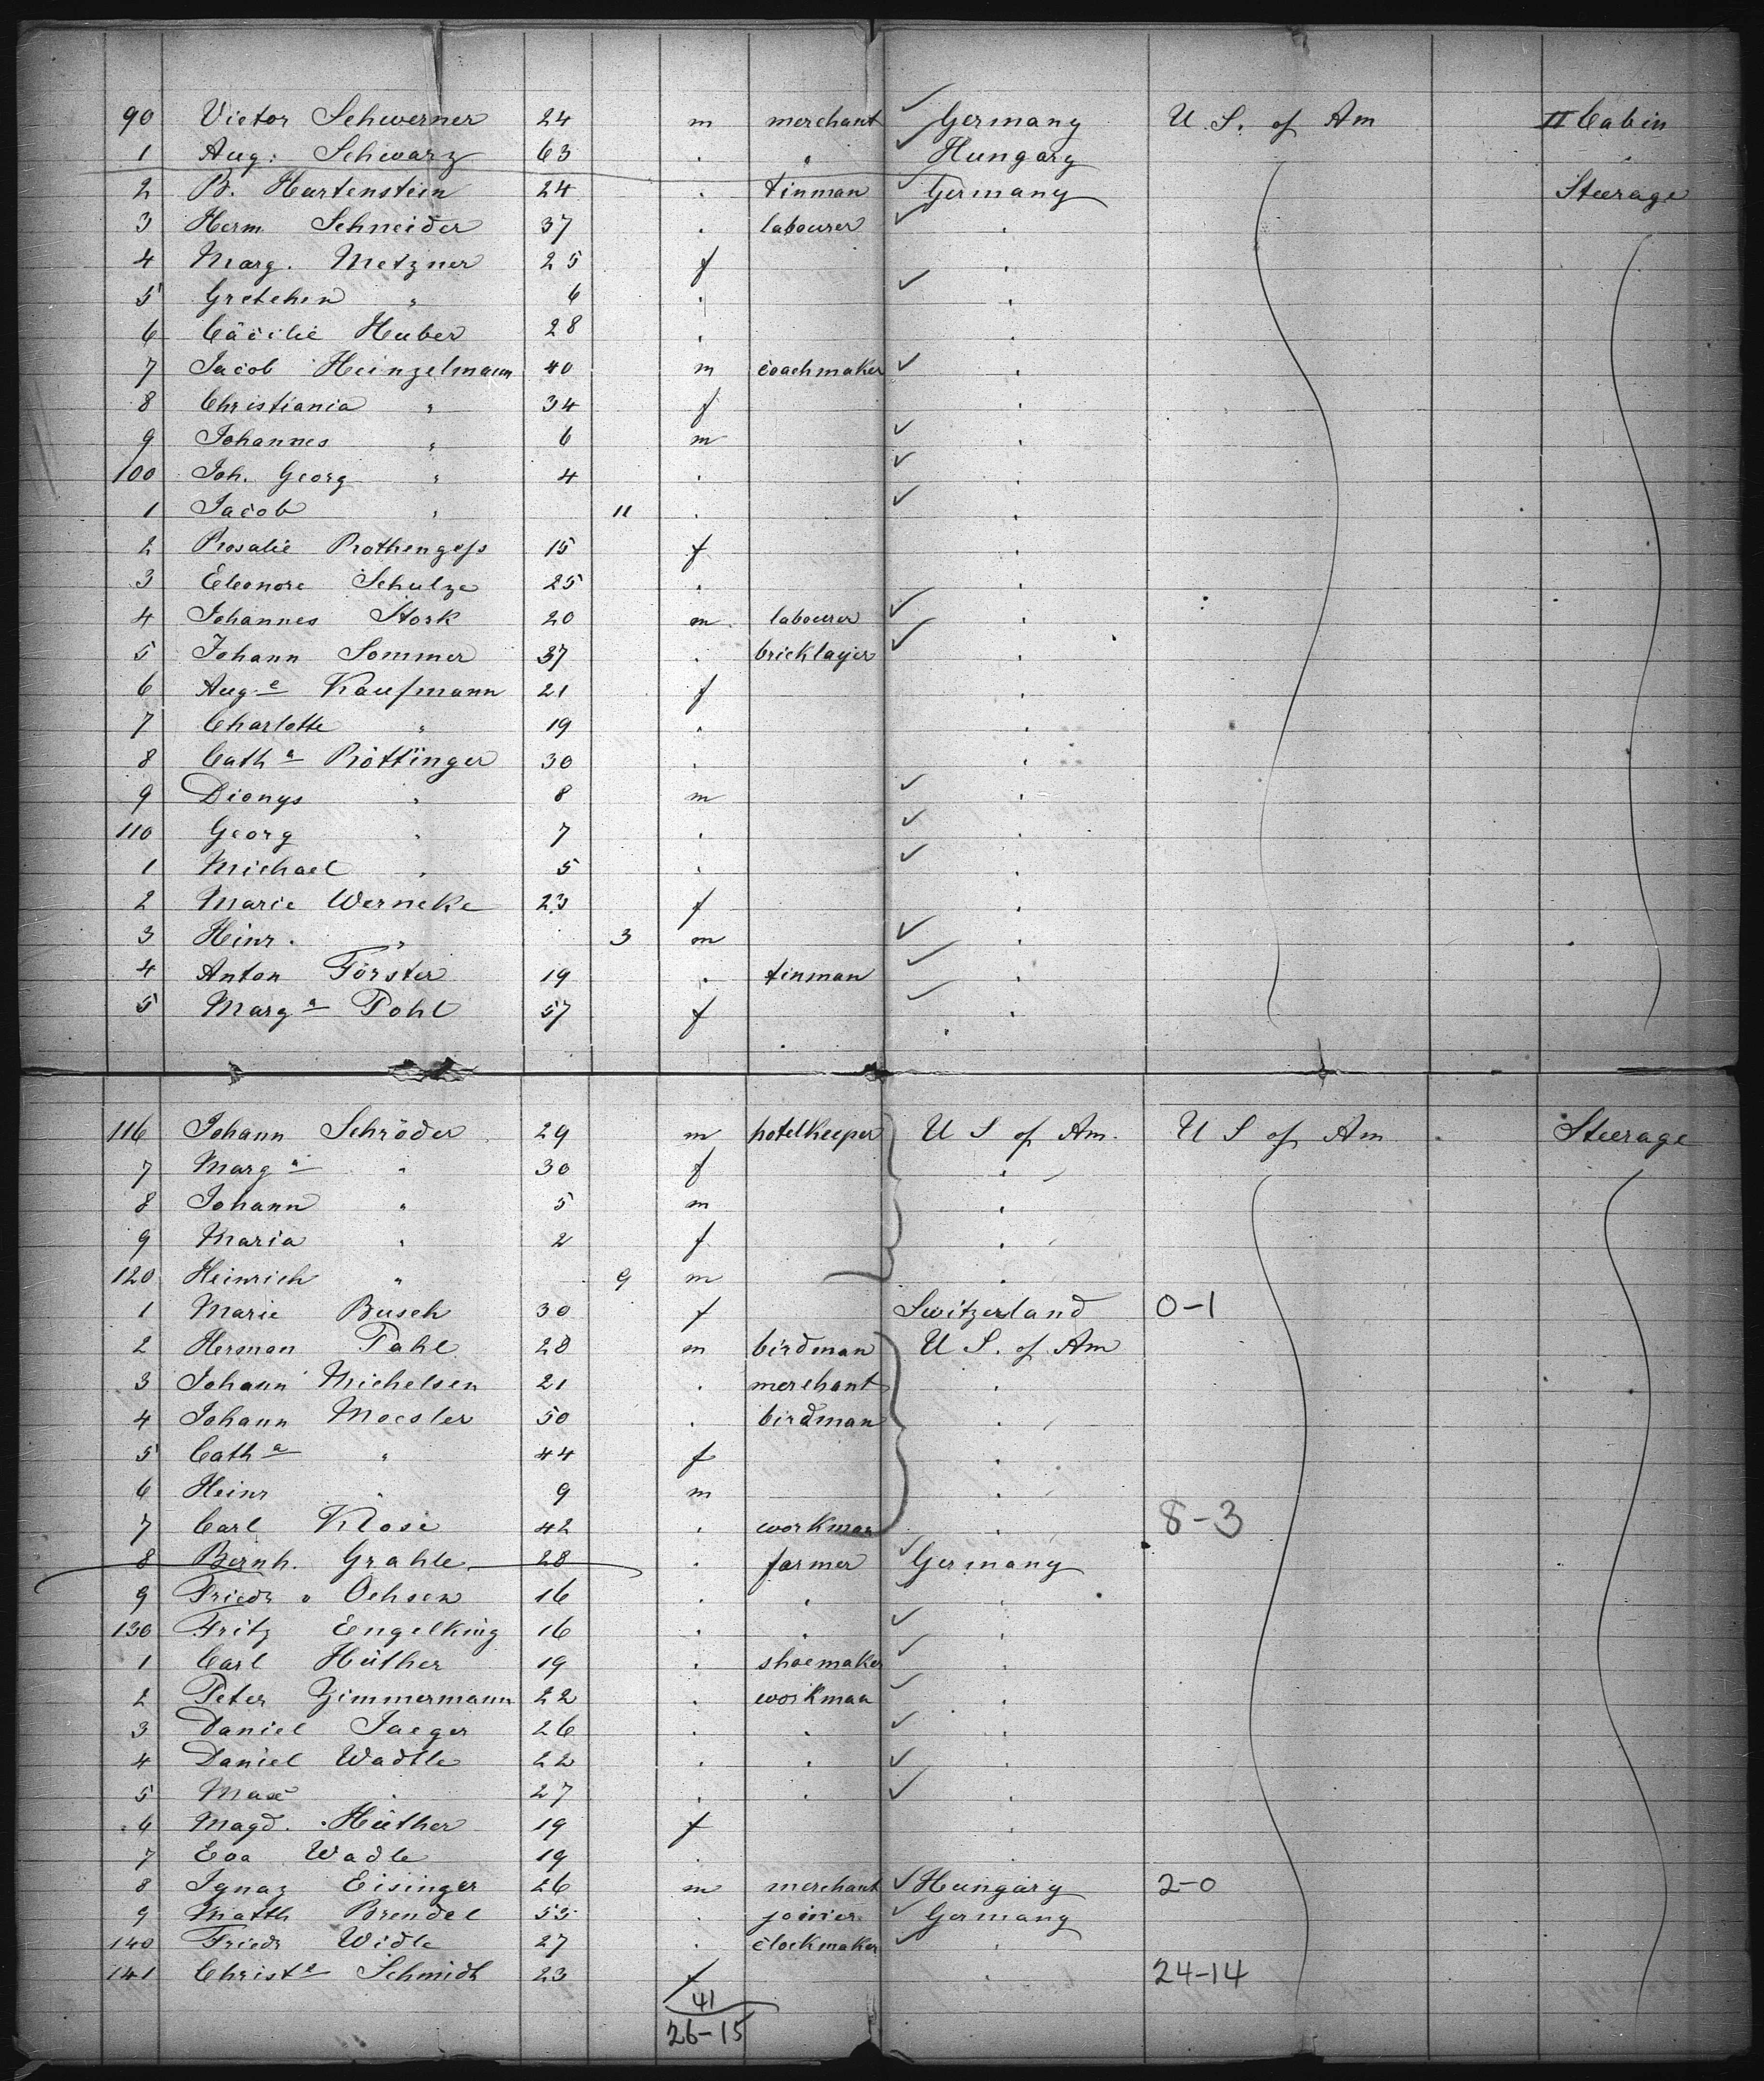 90 Victor Schwerner 24 m merchant ✓ Germany U. S. of Am II Cabin
1 Aug. Schwarz 63 . " ✓ Hungary .
2 B. Hartenstein 24 . tinman ✓ Germany Steerage
3 Herm. Schneider 37 . labourer ✓ "
4 Marg. Metzner 25 f "
5 Gretchen " 6 . ✓ "
6 Cäcilie Huber 28 . "
7 Jacob Heinzelmann 40 m coachmaker ✓ "
8 Christiania " 34 f "
9 Johannes " 6 m ✓ "
100 Joh. Georg " 4 . ✓ "
1 Jacob " 11 . ✓ "
2 Rosalie Rothengass 15 f "
3 Eleonore Schulze 25 . "
4 Johannes Stork 20 m labourer ✓ "
5 Johann Sommer 37 . bricklayer ✓ "
6 Aug.e Kaufmann 21 f "
7 Charlotte " 19 . "
8 Cath.a Röttinger 30 . "
9 Dionys " 8 m ✓ "
110 Georg " 7 . ✓ "
1 Michael " 5 . ✓ "
2 Marie Werneke 23 f "
3 Heinr. " 3 m ✓ "
4 Anton Förster 19 . tinman ✓ "
5 Marg.a Pohl 57 f ✓ "
116 Johann Schröder 29 m hotelkeeper U S of Am. U S of Am Steerage
7 Marg.a " 30 f "
8 Johann " 5 m "
9 Maria " 2 f "
120 Heinrich " 9 m "
1 Marie Busch 30 f Switzerland 0-1
2 Herman Pahl 28 m birdman U S. of Am
3 Johann Michelsen 21 . merchant "
4 Johann Moesler 50 . birdman "
5 Cath.a " 44 f "
6 Heinr " 9 m "
7 Carl Klose 42 . workman " 8-3
8 Bernh. Grahle 28 . farmer ✓ Germany
9 Friedr. Ochsen 16 . " "
130 Fritz Engelking 16 . " ✓ "
1 Carl Hüther 19 . shoemaker ✓ "
2 Peter Zimmermann 22 . workman ✓ "
3 Daniel Jaeger 26 . " ✓ "
4 Daniel Wadtle 22 . " ✓ "
5 Max " 27 . " ✓ "
6 Magd. Hüther 19 f "
7 Eva Wadle 19 . "
8 Ignaz Eisinger 26 m merchant ✓ Hungary 2-0
9 Matth Brendel 53 . joiner ✓ Germany
140 Friedr Widle 27 . clockmaker ✓ "
141 Christ.e Schmidt 23 f " 24-14
41
26-15